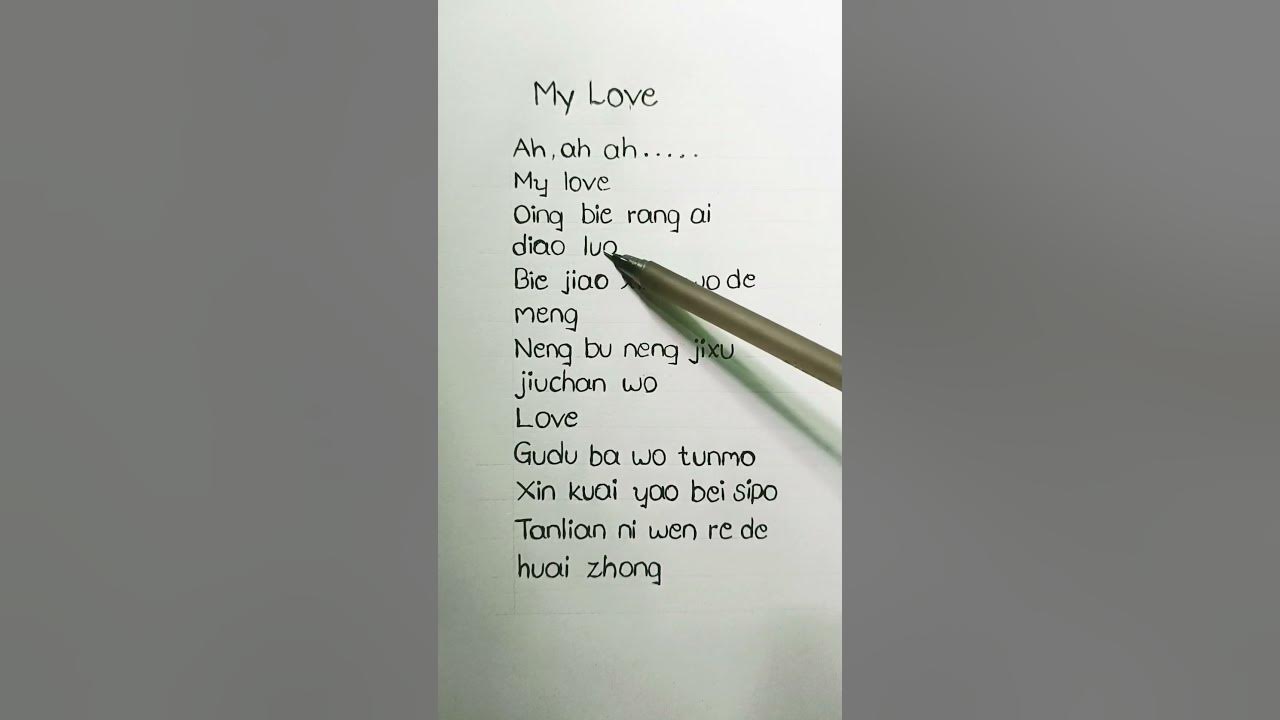 My Love
Ah, ah ah.....
My love
Oing bie rang ai
diao luo
Bie jiao wo de
meng
Neng bu neng jixu
jiuchan wo
Love
Gudu ba wo tunmo
Xin kuai yao bei sipo
Tanlian ni wen re de
huai zhong